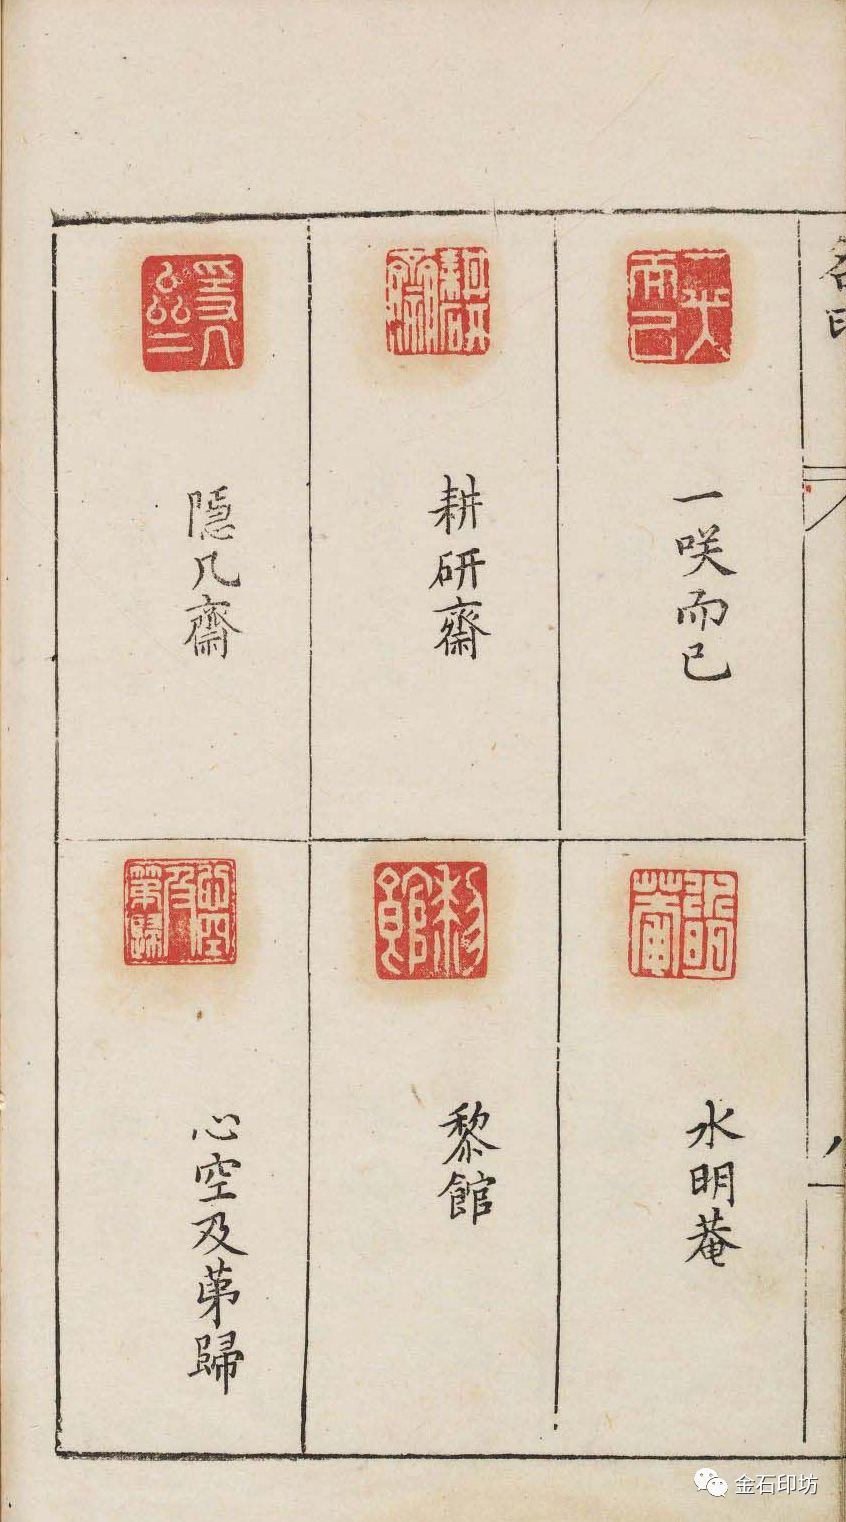 一咲而已
耕研齋
隱几齋
水明菴
黎館
心空及苐歸
金石印坊